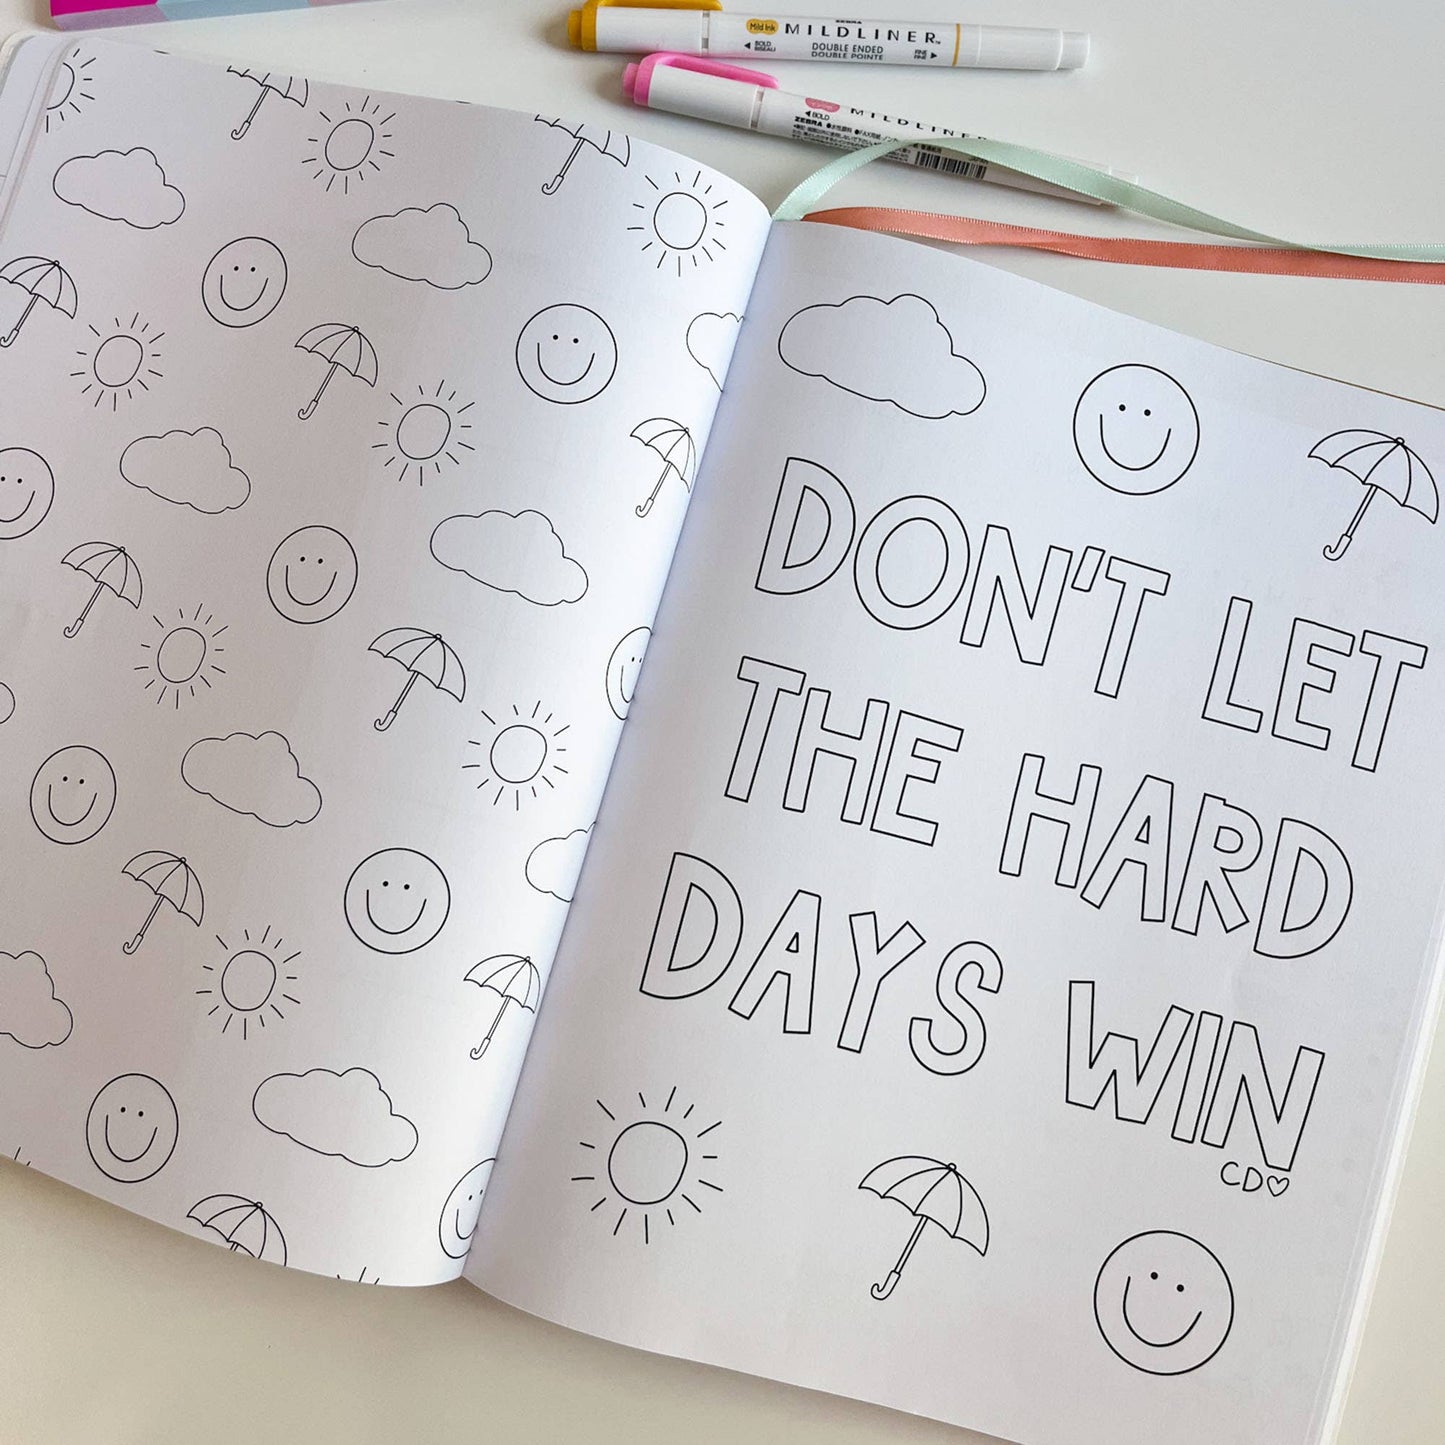 ZEBRA
Mild Ink MILDLINER™
BOLD
BISEAU
DOUBLE ENDED
DOUBLE POINTE
FINE
FINE
MILDLINER
BOLD
ZEBRA
DON'T LET
THE HARD
DAYS WIN
CD♡